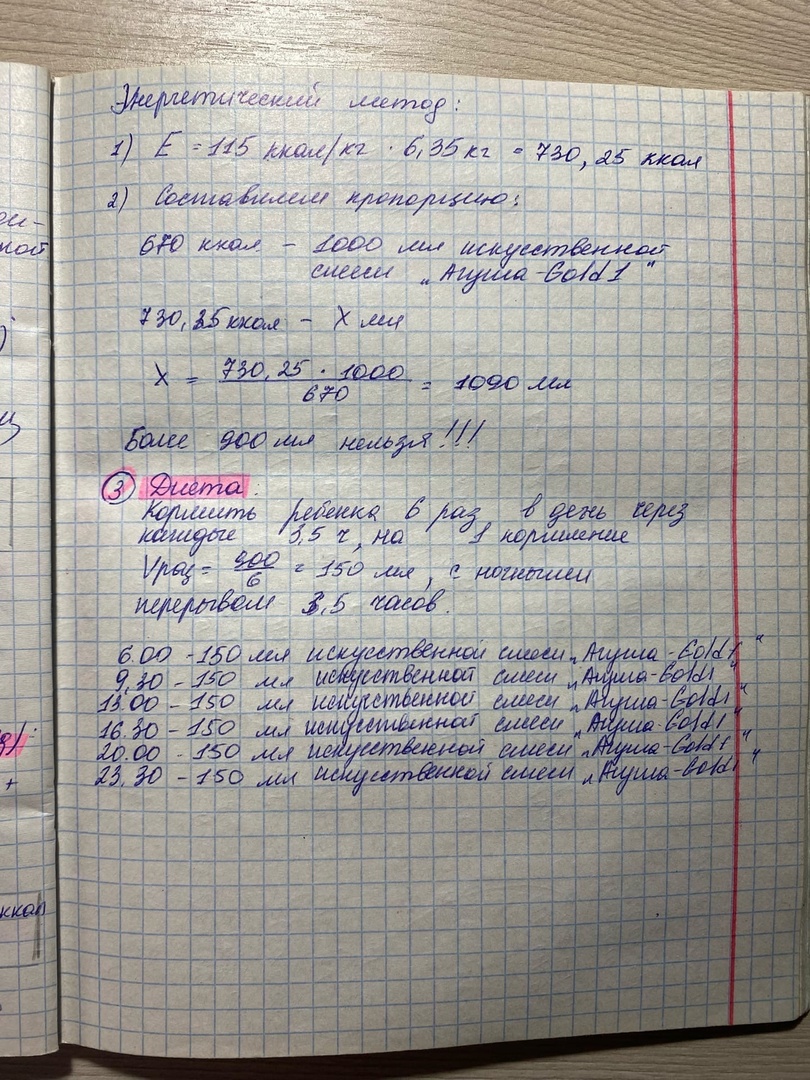 Энергетический метод:
1) E = 115 ккал/кг · 6,35 кг = 730,25 ккал
2) Составляем пропорцию:
670 ккал – 1000 мл искусственной
смеси „Агуша-Gold 1"
730,25 ккал – X мл
X = 730,25 · 1000 / 670 = 1090 мл
Более 900 мл нельзя!!!
3 Диета:
Кормить ребенка 6 раз в день через
каждые 3,5 ч, на 1 кормление
Vраз = 900/6 = 150 мл, с ночным
перерывом 3,5 часов.
6.00 – 150 мл искусственной смеси „Агуша-Gold 1"
9.30 – 150 мл искусственной смеси „Агуша-Gold 1"
13.00 – 150 мл искуственной смеси „Агуша-Gold 1"
16.30 – 150 мл искусственной смеси „Агуша-Gold 1"
20.00 – 150 мл искусственной смеси „Агуша-Gold 1"
23.30 – 150 мл искусственной смеси „Агуша-Gold 1"
ной
+
ккал